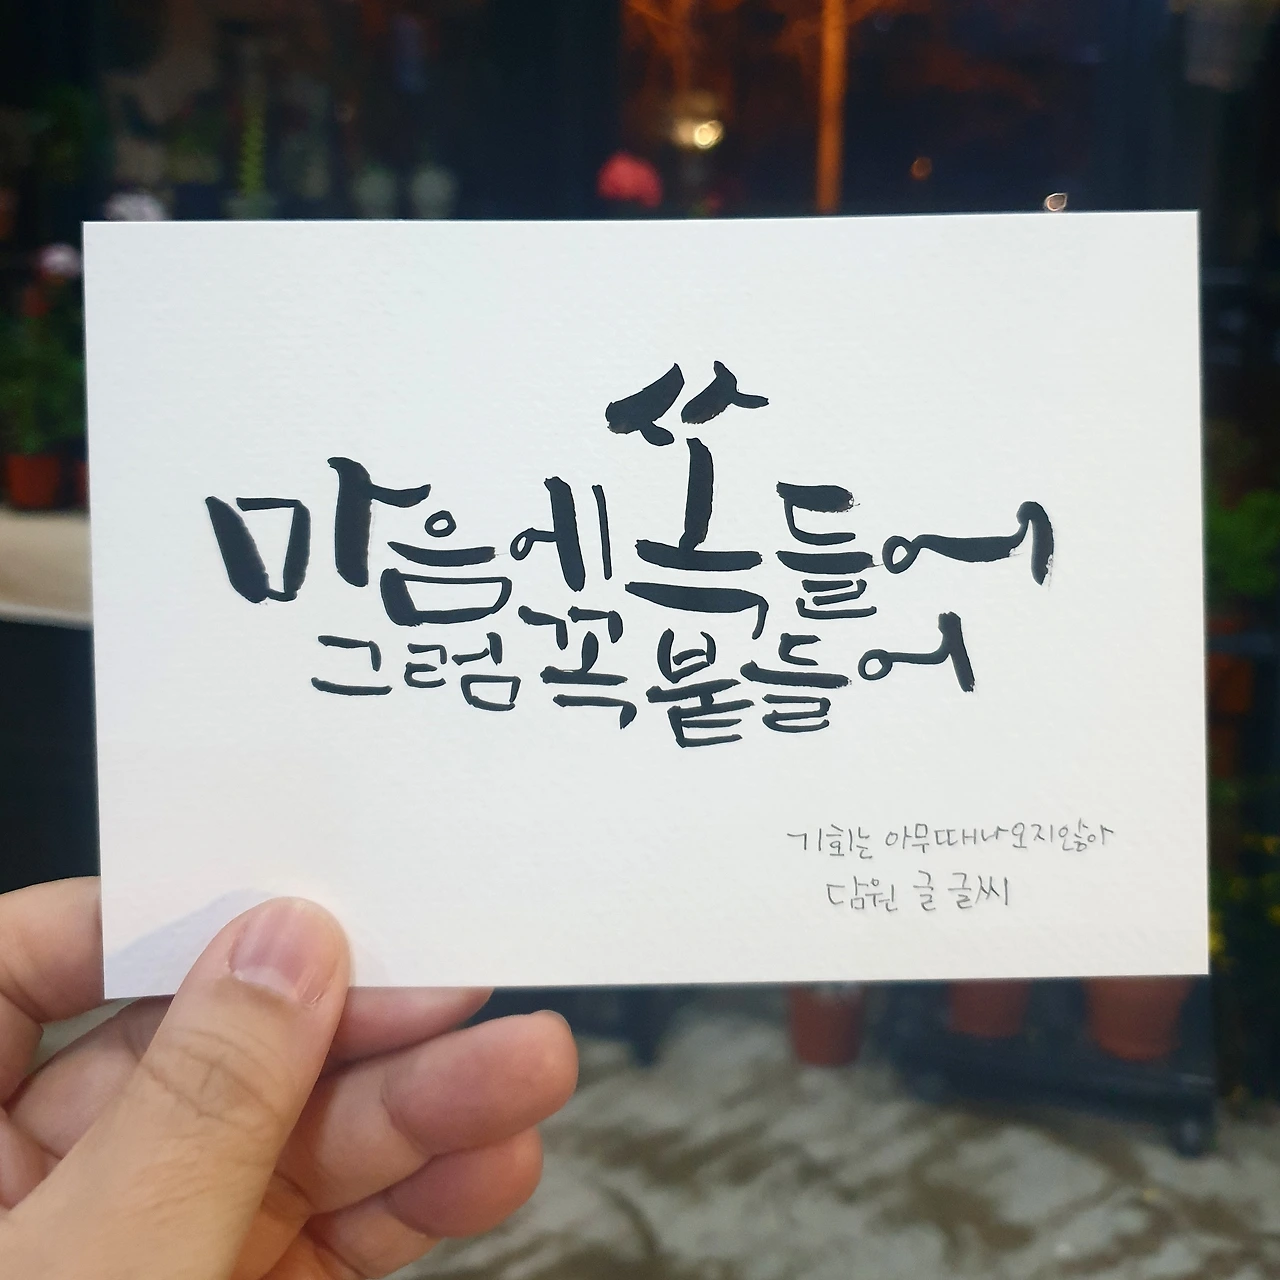 마음에 쏙 들어
그럼 꼭 붙들어
기회는 아무때나오지않아
담원 글 글씨